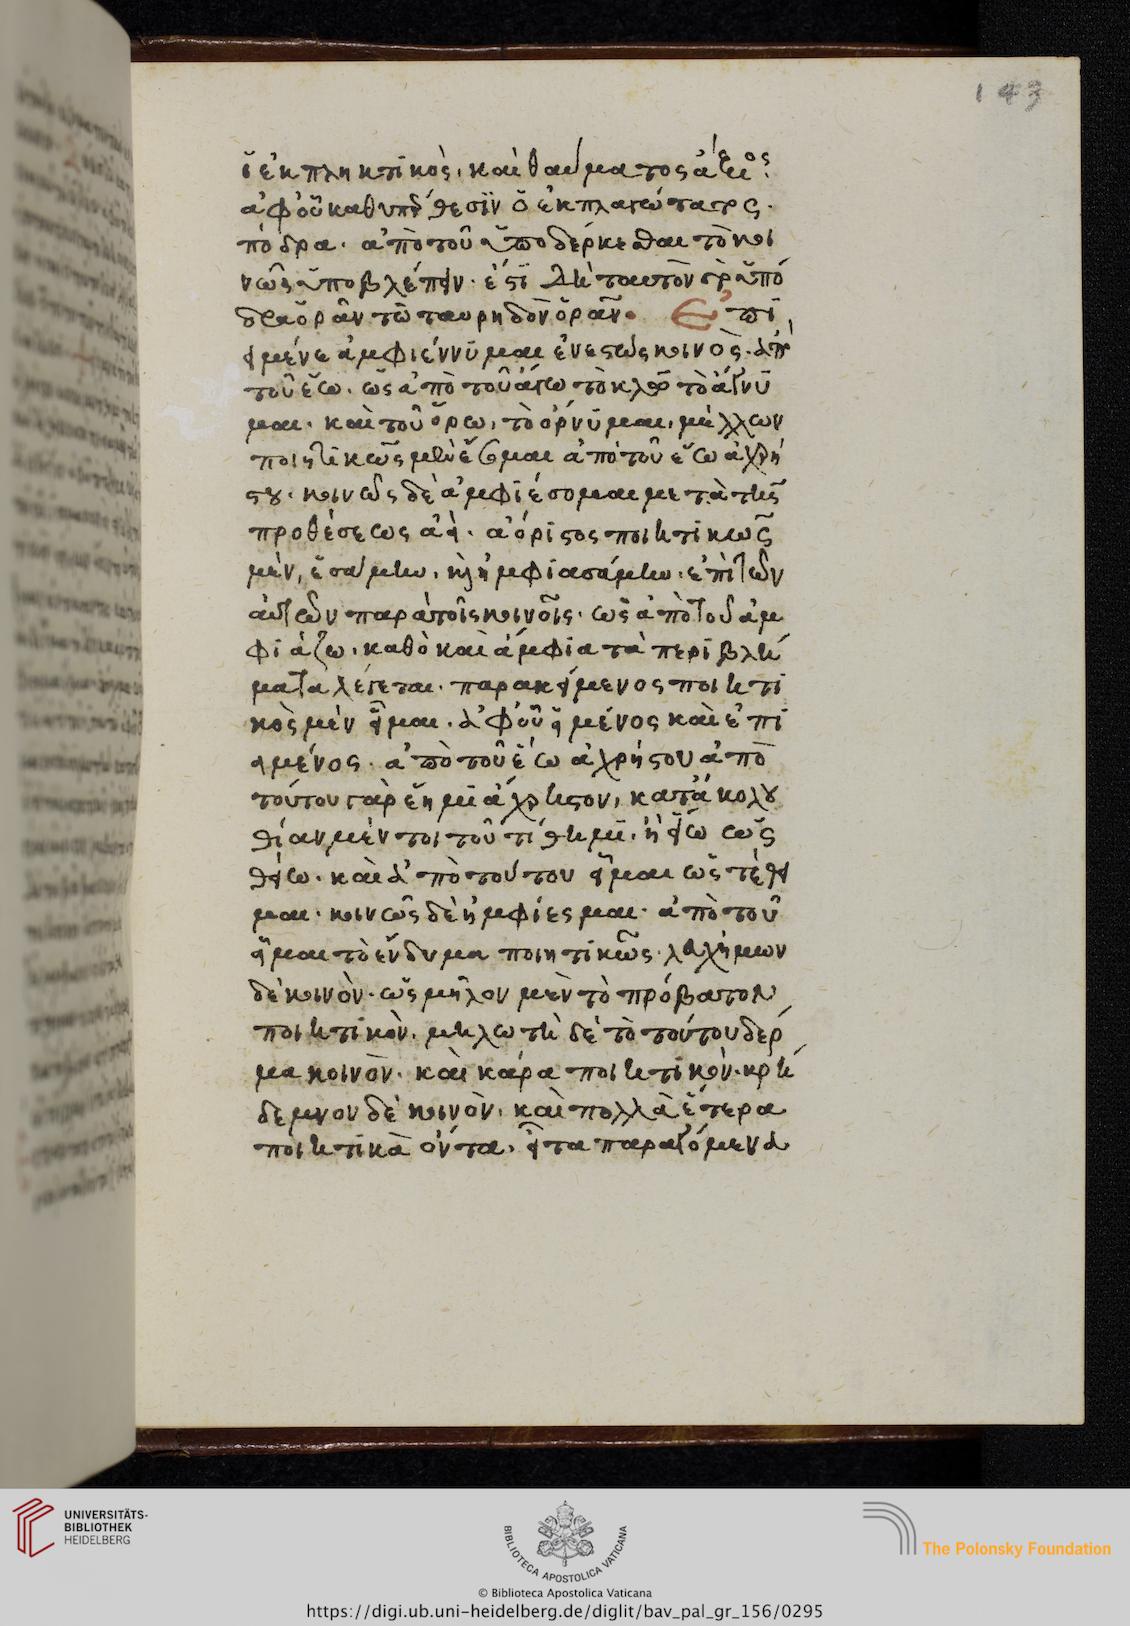 143
ἢ ἐκπληκτικὸς, καὶ θαύματος ἄξιος:
ἀφ' οὗ καθ' ὑπέρθεσιν ὁ ἐκπλαγώτατος.
ὑπόδρα. ἀπὸ τοῦ ὑποδέρκεσθαι τὸ κοι
νῶς ὑποβλέπειν. ἐστὶ δὲ ταυτὸν τὸ ὑπό
δρα ὁρᾶν τῶ ταυρηδὸν ὁρᾶν. Ἐπι
ειμένε ἀμφιέννυμαι ἐνεστὼς κοινὸς. ἀπὸ
τοῦ ἕω. ὡς ἀπὸ τοῦ ἄγω τὸ κλῶ τὸ ἄγνυ
μαι. καὶ τοῦ ὄρω, τὸ ὄρνυμαι, μέλλων
ποιητικῶς μὲν ἕσομαι ἀπὸ τοῦ ἕω ἀχρή
στου. κοινῶς δὲ ἀμφιέσομαι μετὰ τῆς
προθέσεως ἀεὶ. ἀόριστος ποιητικῶς
μὲν, ἑσάμην, καὶ ἠμφιασάμην. ἐπὶ τῶν
αὐτῶν παρὰ τοῖς κοινοῖς. ὡς ἀπὸ τοῦ ἀμ
φιάζω. καθὸ καὶ ἀμφία τὰ περιβλή
ματα λέγεται. παρακείμενος ποιητι
κὸς μὲν εἷμαι. ἀφ' οὗ εἱμένος καὶ ἐπι
ειμένος. ἀπὸ τοῦ ἕω ἀχρήστου ἀπὸ
τούτου γὰρ ἕημι ἄχρηστον, κατὰ ἀκολου
θίαν μέντοι τοῦ τίθημι. ἢ εἵω ὡς
θείω. καὶ ἀπὸ τούτου εἷμαι ὡς τέθει
μαι. κοινῶς δὲ ἠμφίεσμαι. ἀπὸ τοῦ
εἷμαι τὸ ἔνδυμα ποιητικῶς. λαχήμων
δὲ κοινὸν. ὡς μῆλον μὲν τὸ πρόβατον
ποιητικὸν. μηλωτὴ δὲ τὸ τούτου δέρ
μα κοινὸν. καὶ κάρα ποιητικὸν. κρή
δεμνον δὲ κοινὸν. καὶ πολλὰ ἕτερα
ποιητικὰ ὄντα, εἶτα παραγόμενα
UNIVERSITÄTS-
BIBLIOTHEK
HEIDELBERG
BIBLIOTECA APOSTOLICA VATICANA
The Polonsky Foundation
© Biblioteca Apostolica Vaticana
https://digi.ub.uni-heidelberg.de/diglit/bav_pal_gr_156/0295